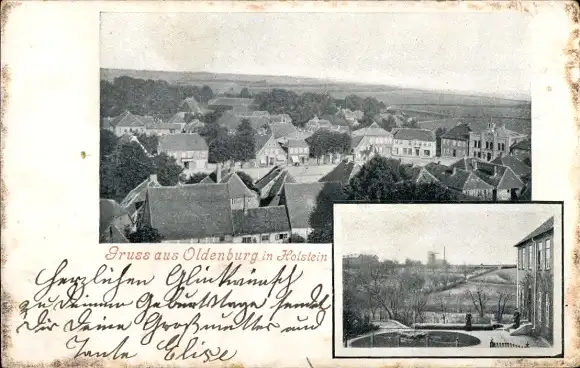 Gruss aus Oldenburg in Holstein
Herzlichen Glückwunsch
zu Deinem Geburtstage sendet
Dir Deine Großmutter und
Tante Elise